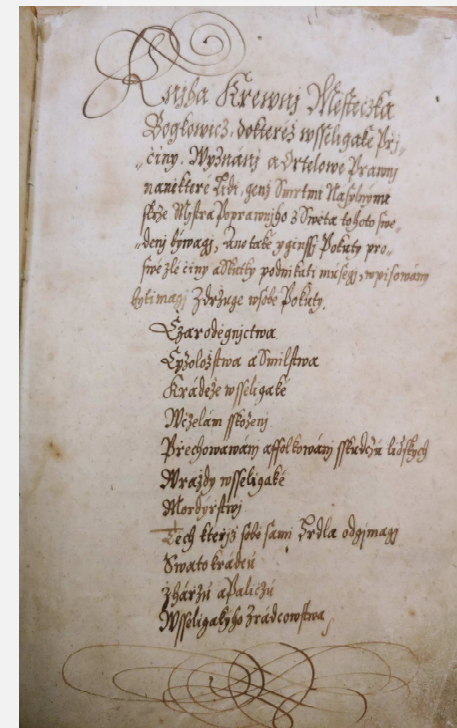 Knjha Krewnj Mesteczka
Bogkowicz, dokterež wsseligaké Při„
„činy, Wyznánj a Ortelowe Prawnj
naniktere Lidi, genž Smrtmi Násylnými
skrže Mistra Poprawnjho z Swěta tohoto swe„
„denj býwagj, Ano také y ginssý Pokuty pro„
swé zlé činy a Skutky podnikati musegj, wpisowány
byti magj Zdržuge w sobě Pokuty.
Czarodegnictwa
Cyzoložstwa a Smilstwa
Krádeže wsseligaké
Wčelám sskoženj
Přechowáwánj a ffolkowánj sskudcůw lidských
Wraždy wsseligaké
Mordýřstwj
Těch kteřjž sobě sami Hrdla odgjmagj
Swatokrádců
Žhářzů a Paličzů
Wsseligakýho Zrádcowstwa